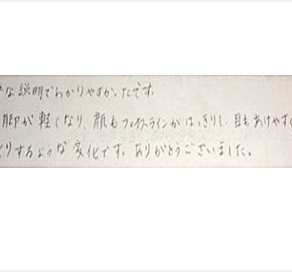 な説明でわかりやすかったです。
脚が軽くなり、顔もフェイスラインがはっきりし、目もあけやすく
りするような変化です。ありがとうございました。